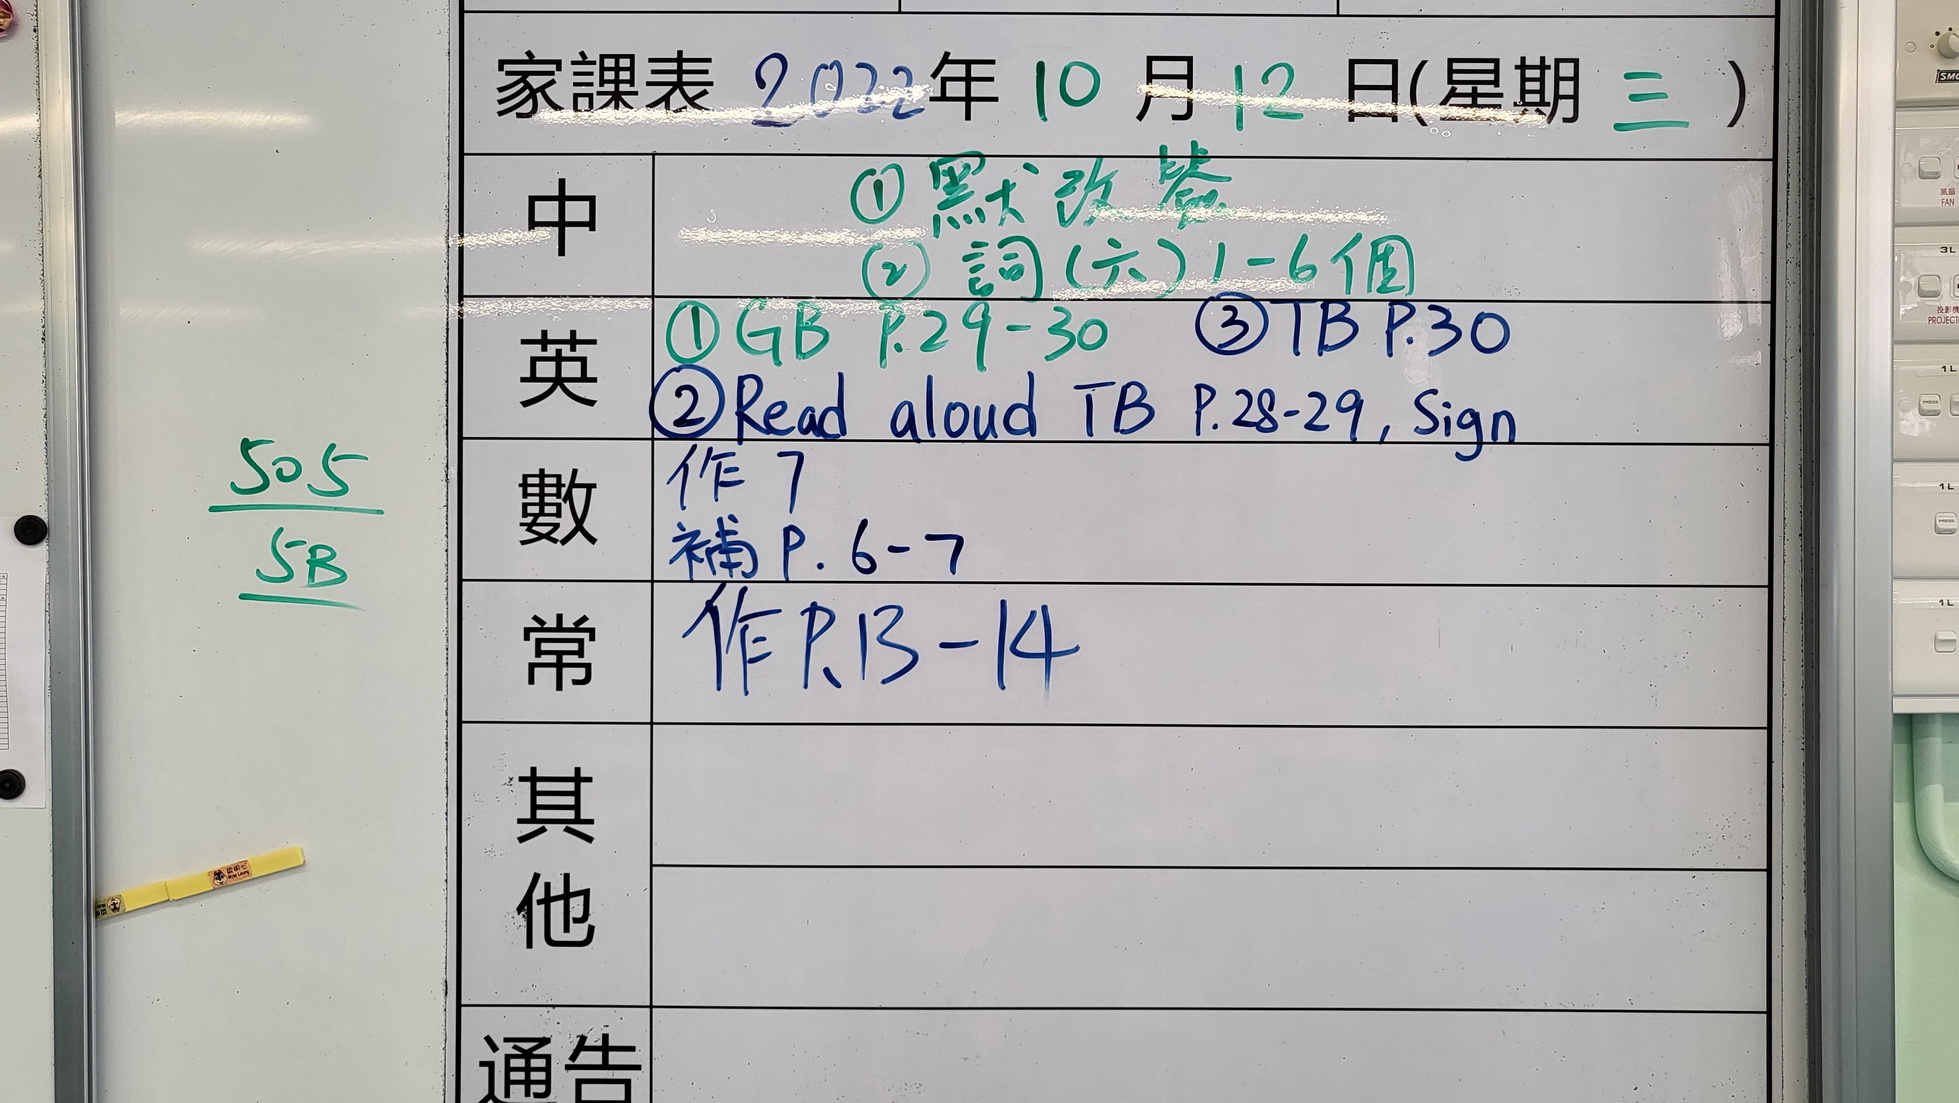 家課表 2022年 10 月 12 日(星期 三 )
中
① 默改簽
② 詞(六) 1-6個
英
① GB P.29-30 ③ TB P.30
② Read aloud TB P.28-29, Sign
數
作 7
補 P. 6-7
常
作 P.13-14
其他
通告
505
5B
風扇
FAN
3L
投影機
1L
1L
1L